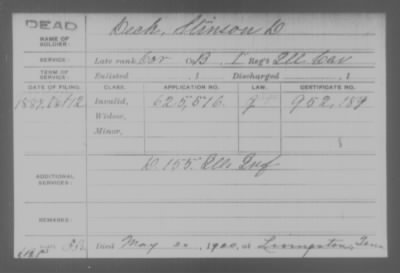 DEAD
NAME OF SOLDIER: Beck, Stinson D
SERVICE: Late rank, Cor Co. B, I Reg't Ill Cav
TERM OF SERVICE: Enlisted , 1 Discharged , 1
DATE OF FILING. CLASS. APPLICATION NO. LAW. CERTIFICATE NO.
Invalid, 625,516 952,189
Widow,
Minor,
ADDITIONAL SERVICES: D. 155. Ills Inf
REMARKS:
Died May 1900, at Livingston, Tenn